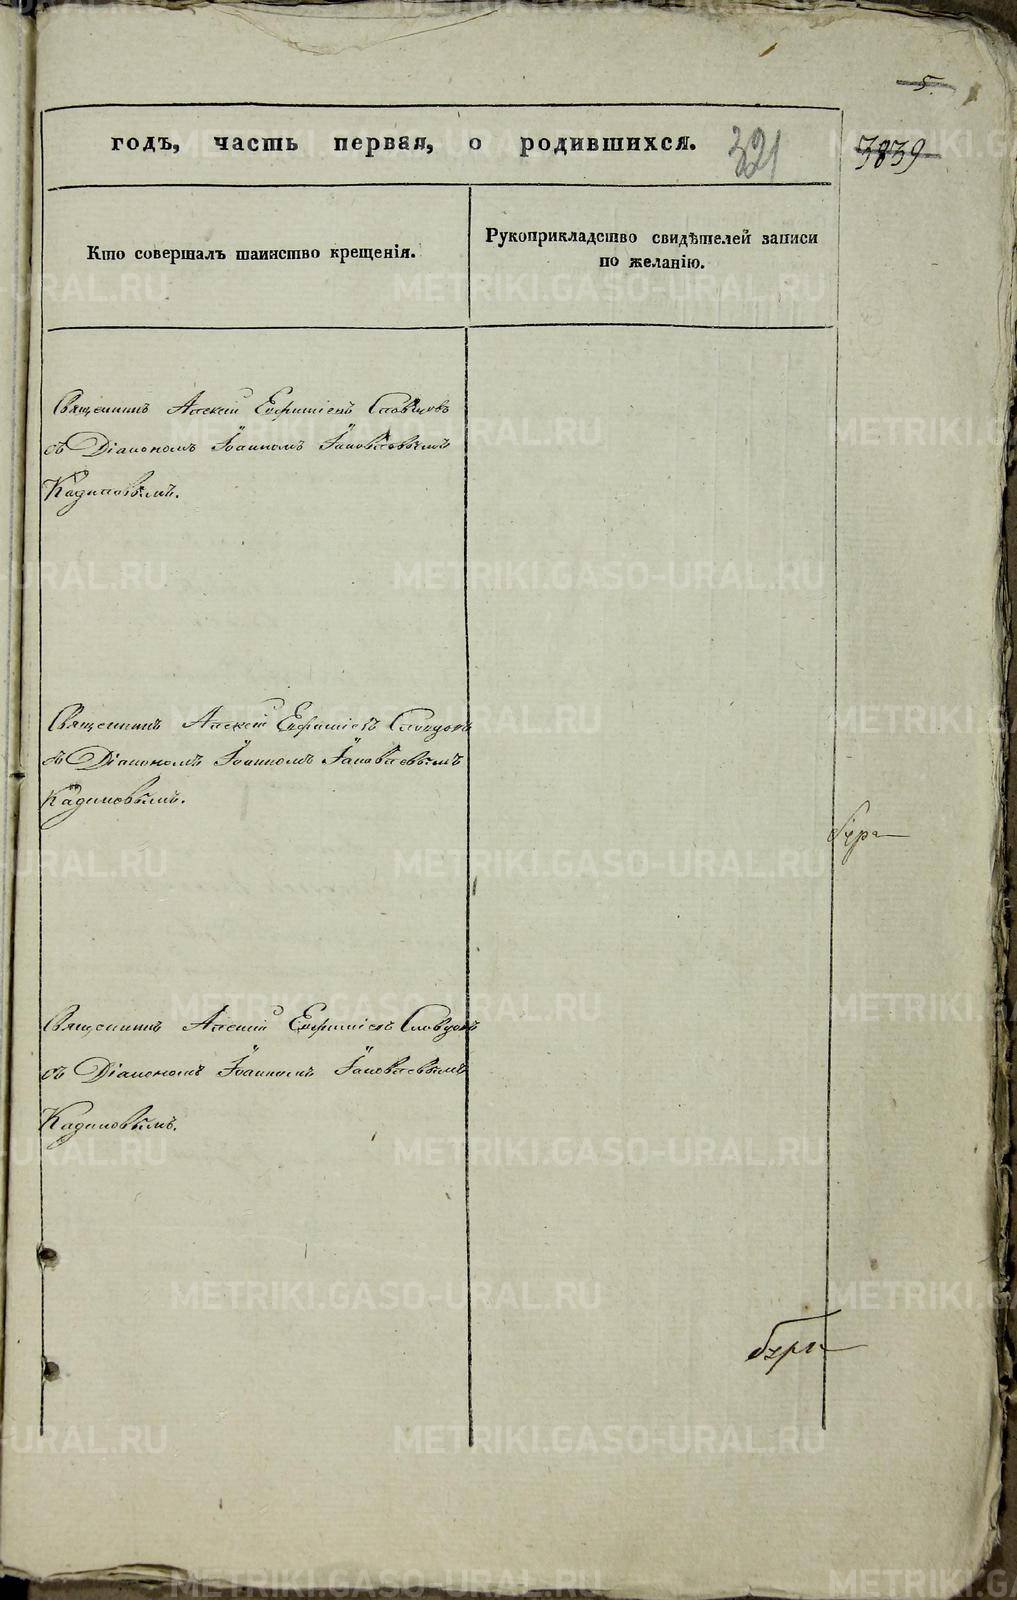 5.
годъ, часть первая, о родившихся.
321
3839
Кто совершалъ таинство крещенія.
Рукоприкладство свидѣтелей записи
по желанію.
Священникъ Алексій Евфиміевъ Словцовъ
съ Діакономъ Іоанномъ Іаковлевымъ
Кадиковымъ.
Священникъ Алексій Евфиміевъ Словцовъ
съ Діакономъ Іоанномъ Іаковлевымъ
Кадиковымъ.
Священникъ Алексій Евфиміевъ Словцовъ
съ Діакономъ Іоанномъ Іаковлевымъ
Кадиковымъ.
METRIKI.GASO-URAL.RU